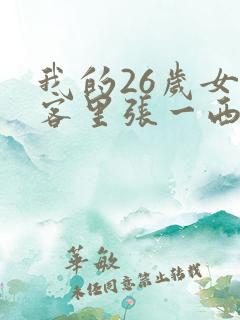 我的26歲女
客里張一西
華敏
未经同意禁止转载